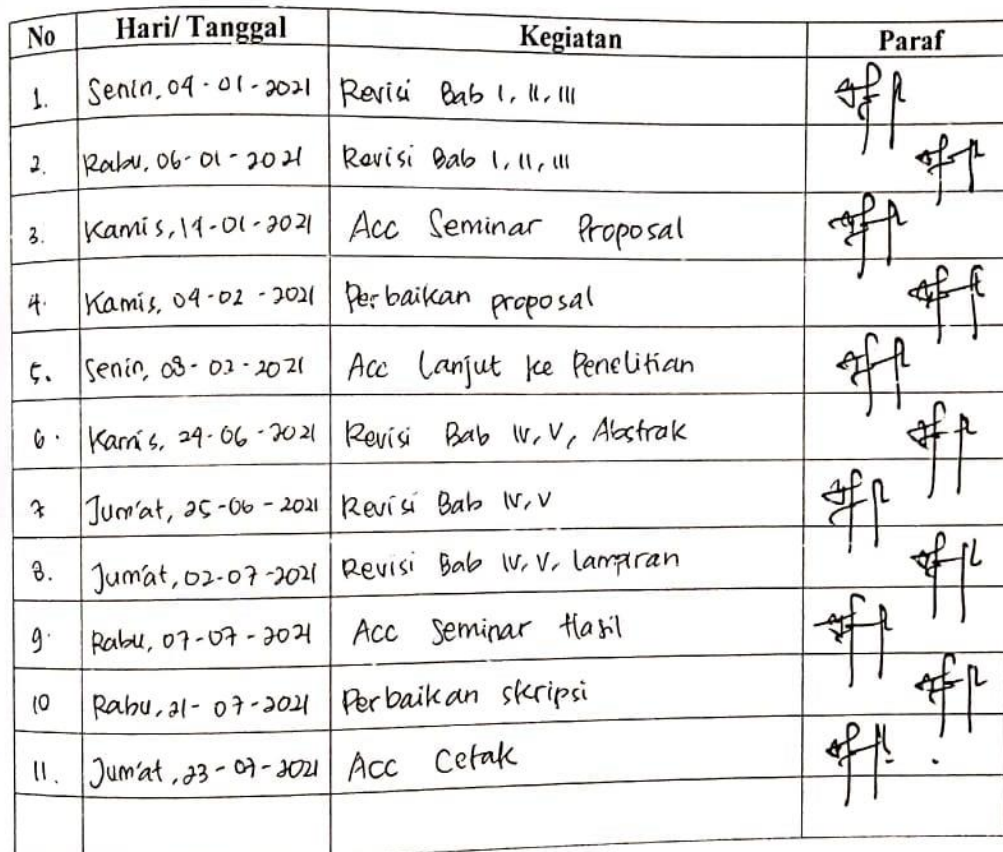 No Hari/ Tanggal Kegiatan Paraf
1. Senin, 04-01-2021 Revisi Bab I, II, III
2. Rabu, 06-01-2021 Revisi Bab I, II, III
3. Kamis, 14-01-2021 Acc Seminar Proposal
4. Kamis, 04-02-2021 Perbaikan proposal
5. Senin, 08-02-2021 Acc Lanjut ke Penelitian
6. Kamis, 24-06-2021 Revisi Bab IV, V, Abstrak
7 Jum'at, 25-06-2021 Revisi Bab IV, V
8. Jum'at, 02-07-2021 Revisi Bab IV, V, lampiran
9. Rabu, 07-07-2021 Acc Seminar Hasil
10 Rabu, 21-07-2021 Perbaikan skripsi
11. Jum'at, 23-07-2021 Acc Cetak